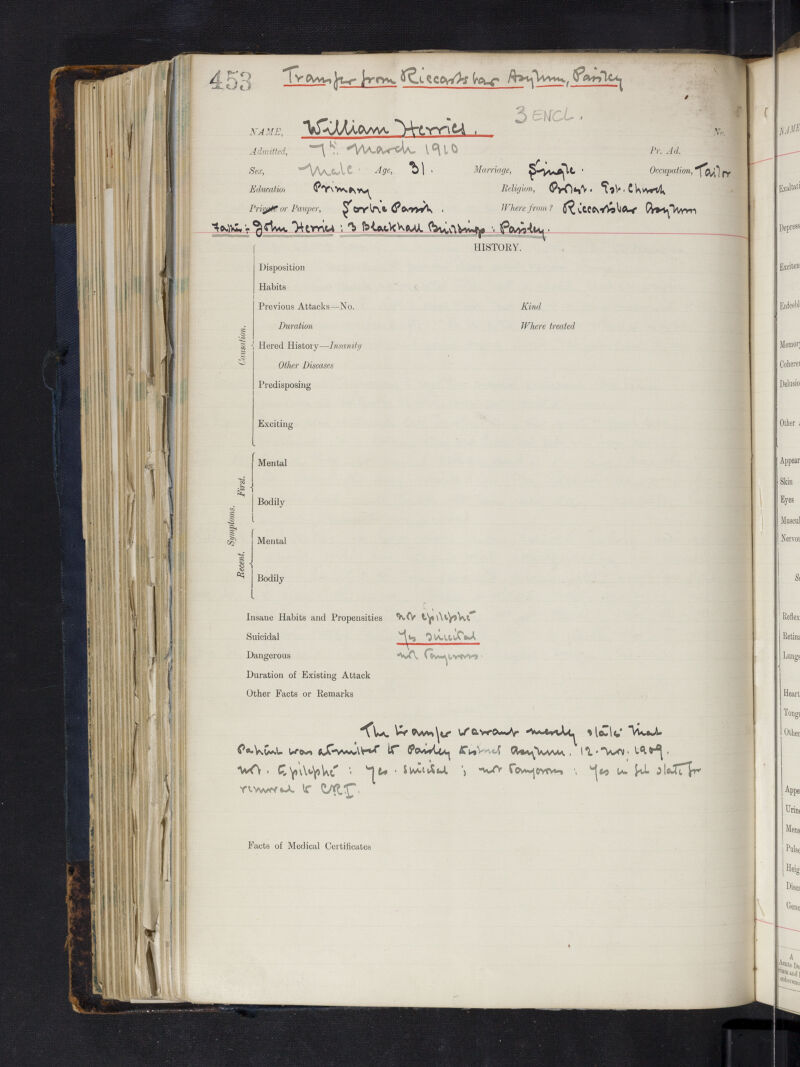 453 Transfer from Riccartsbar Asylum, Paisley
3 ENCL.
NAME, William Herries. No.
Admitted, 7th March 1910 Pr. Ad.
Sex, Male Age, 31. Marriage, Single. Occupation, Tailor
Education Primary Religion, Protest. Est. Church
Private or Pauper, Sorbie Parish. Where from? Riccartsbar Asylum
Father: John Herries: 3 Blackhall Buildings: Paisley.
HISTORY.
Disposition
Habits
Previous Attacks—No. Kind
Duration Where treated
Causation.
Hered History—Insanity
Other Diseases
Predisposing
Exciting
Symptoms.
First.
Mental
Bodily
Recent.
Mental
Bodily
Insane Habits and Propensities not epileptic
Suicidal Yes suicidal
Dangerous not dangerous.
Duration of Existing Attack
Other Facts or Remarks
The transfer warrant merely states that
Patient was admitted to Paisley District Asylum. 12. Nov. 1909.
not. Epileptic: yes. suicidal; not dangerous: Yes in fit state for
removal to C.R.I.
Facts of Medical Certificates
NAME
Exaltati
Depress
Excitem
Enfeebl
Memory
Coheren
Delusio
Other
Appear
Skin
Eyes
Muscul
Nervou
Reflex
Retina
Lungs
Heart
Tongu
Other
Appe
Urine
Mens
Pulse
Heig
Disea
Gene